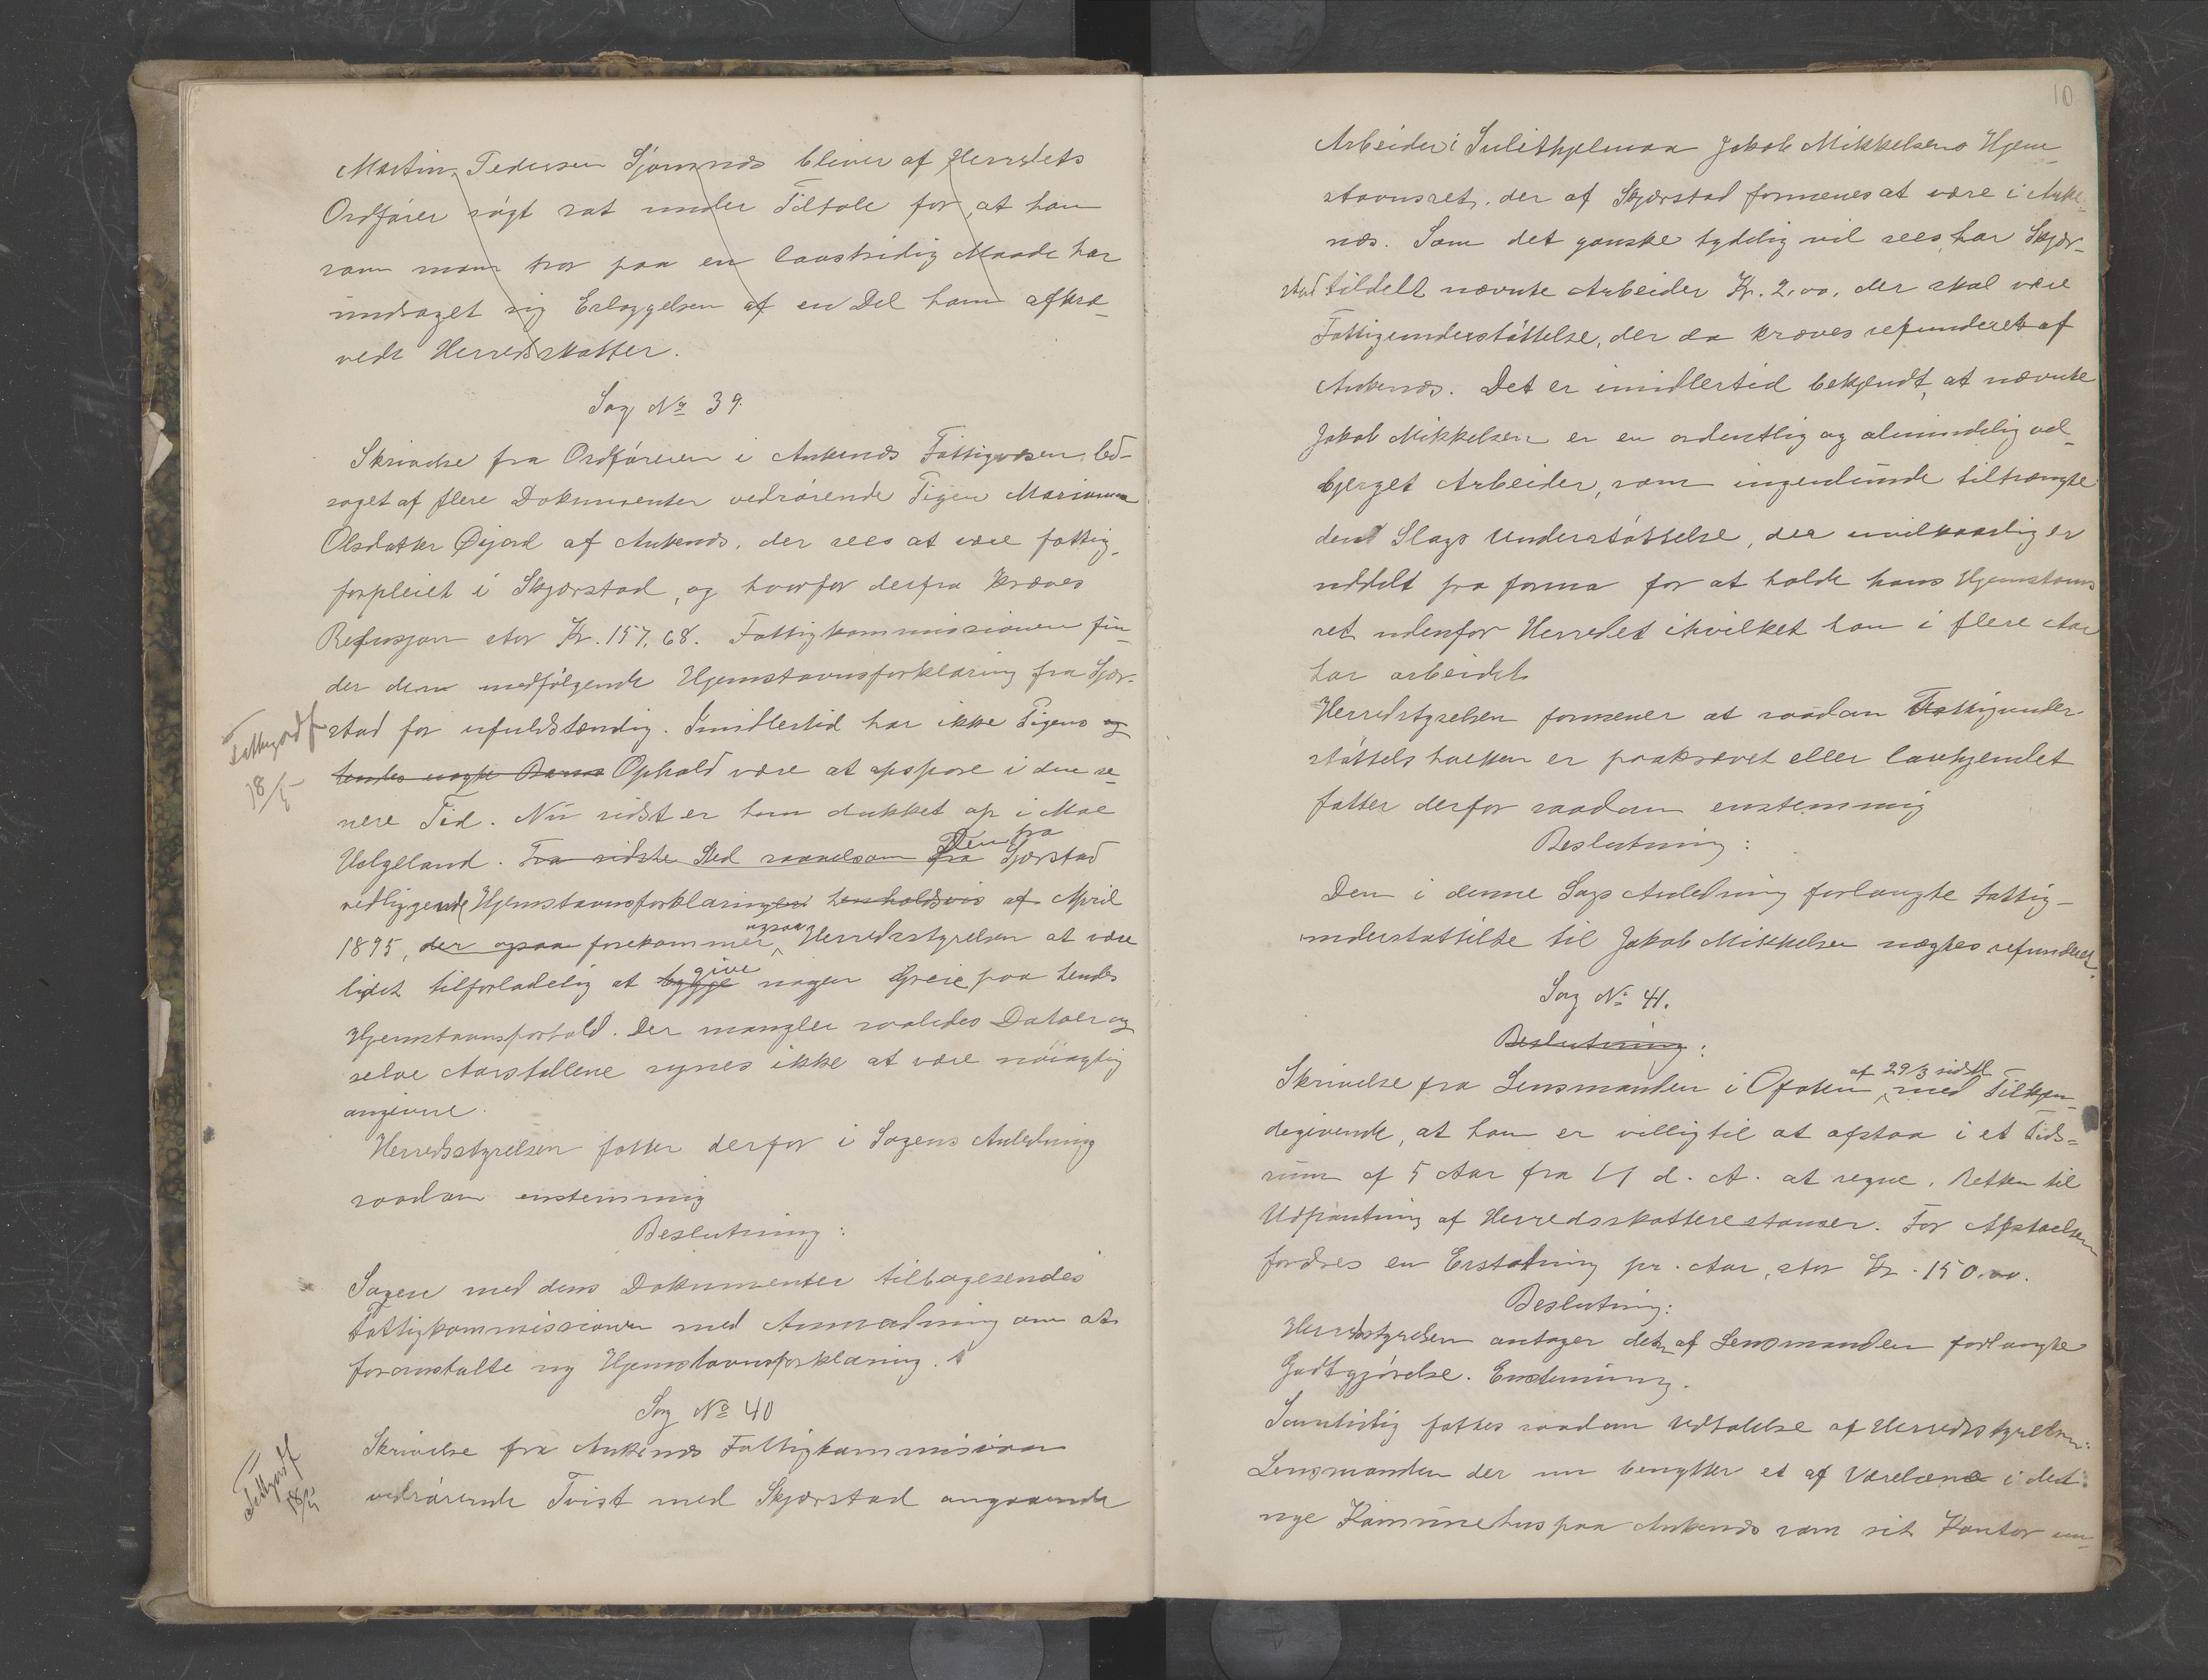 Martin Pedersen Sjømnæs bliver af Herredets
Ordfører søgt sat under Tiltale for, at han
som man tror paa en lovstridig Maade har
unddraget sig Erlæggelsen af en Del ham afkræ-
vede Herredsskatter.
Sag No 39.
Skrivelse fra Ordføreren i Ankenæs Fattigvæsen led-
saget af flere Dokumenter vedrørende Pigen Marianna
Olsdatter Øijord af Ankenæs, der sees at være fattig-
forpleiet i Skjærstad, og hvorfor derfra kræves
Refusjon stor Kr. 157,68. Fattigkommissionen fin-
der den medfølgende Hjemstavnsforklaring fra Sjær-
stad for ufuldstændig. Imidlertid har ikke Pigens og
hendes Barns Ophold være at opspore i den se-
nere Tid. Nu sidst er hun dukket op i Moe
Helgeland. Fra sidste Sted saavelsom fra Den fra Sjærstad
vedliggende Hjemstavnsforklaringer henholdsvis af April
1895, der ogsaa forekommer ogsaa Herredsstyrelsen at være
lidet tilforladelig at bygge give nogen Greie paa hendes
Hjemstavnsforhold. Der mangler saaledes Datoer og
selve Aarstallene synes ikke at være nøiagtig
angivne.
Herredsstyrelsen fatter derfor i Sagens Anledning
saadan enstemmig
Beslutning:
Sagen med dens Dokumenter tilbagesendes
Fattigkommissionen med Anmodning om at
foranstalte ny Hjemstavnsforklaring.
Sag No 40
Skrivelse fra Ankenæs Fattigkommission
vedrørende Tvist med Skjærstad angaaende
Fattigordf
18/5
Fattigordf
18/5
10
Arbeider i Sulithjelmaa Jakob Mikkelsens Hjem-
stavnsret, der af Skjærstad formenes at være i Anke-
næs. Som det ganske tydelig vil sees, har Skjær-
stad tildelt nævnte Arbeider Kr. 2,00, der skal være
Fattigunderstøttelse, der da kræves refunderet af
Ankenæs. Det er imidlertid bekjendt, at nævnte
Jakob Mikkelsen er en ordentlig og almindelig vel-
bjerget Arbeider, som ingenlunde tiltrængte
den Slags Understøttelse, der uvilkaarlig er
uddelt pro forma for at holde hans Hjemstavns
ret udenfor Herredet ihvilket han i flere Aar
har arbeidet.
Herredstyrelsen formener at saadan Fattigunder-
støttelse hverken er paakrævet eller lovhjemlet
fatter derfor saadan enstemmig
Beslutning:
Den i denne Sags Anledning forlangte Fattig-
understøttelse til Jakob Mikkelsen nægtes refunderet.
Sag No 41.
Beslutning:
Skrivelse fra Lensmanden i Ofoten af 29/3 sidstl. med Tilkjen-
degivende, at han er villig til at afstaa i et Tids-
rum af 5 Aar fra 1/1 d. A. at regne, Retten til
Udpantning af Herredsskatterestanser. For Afstaaelsen
fordres en Erstatning pr. Aar, stor Kr. 150.00.
Beslutning:
Herredsstyrelsen antager den af Lensmanden forlangte
Godtgjørelse. Enstemmig.
Samtidig fattes saadan Udtalelse af Herredsstyrelsen:
Lensmanden der nu benytter et af Værelsene i det
nye Kommunehus paa Ankenæs som sit Kontor un-